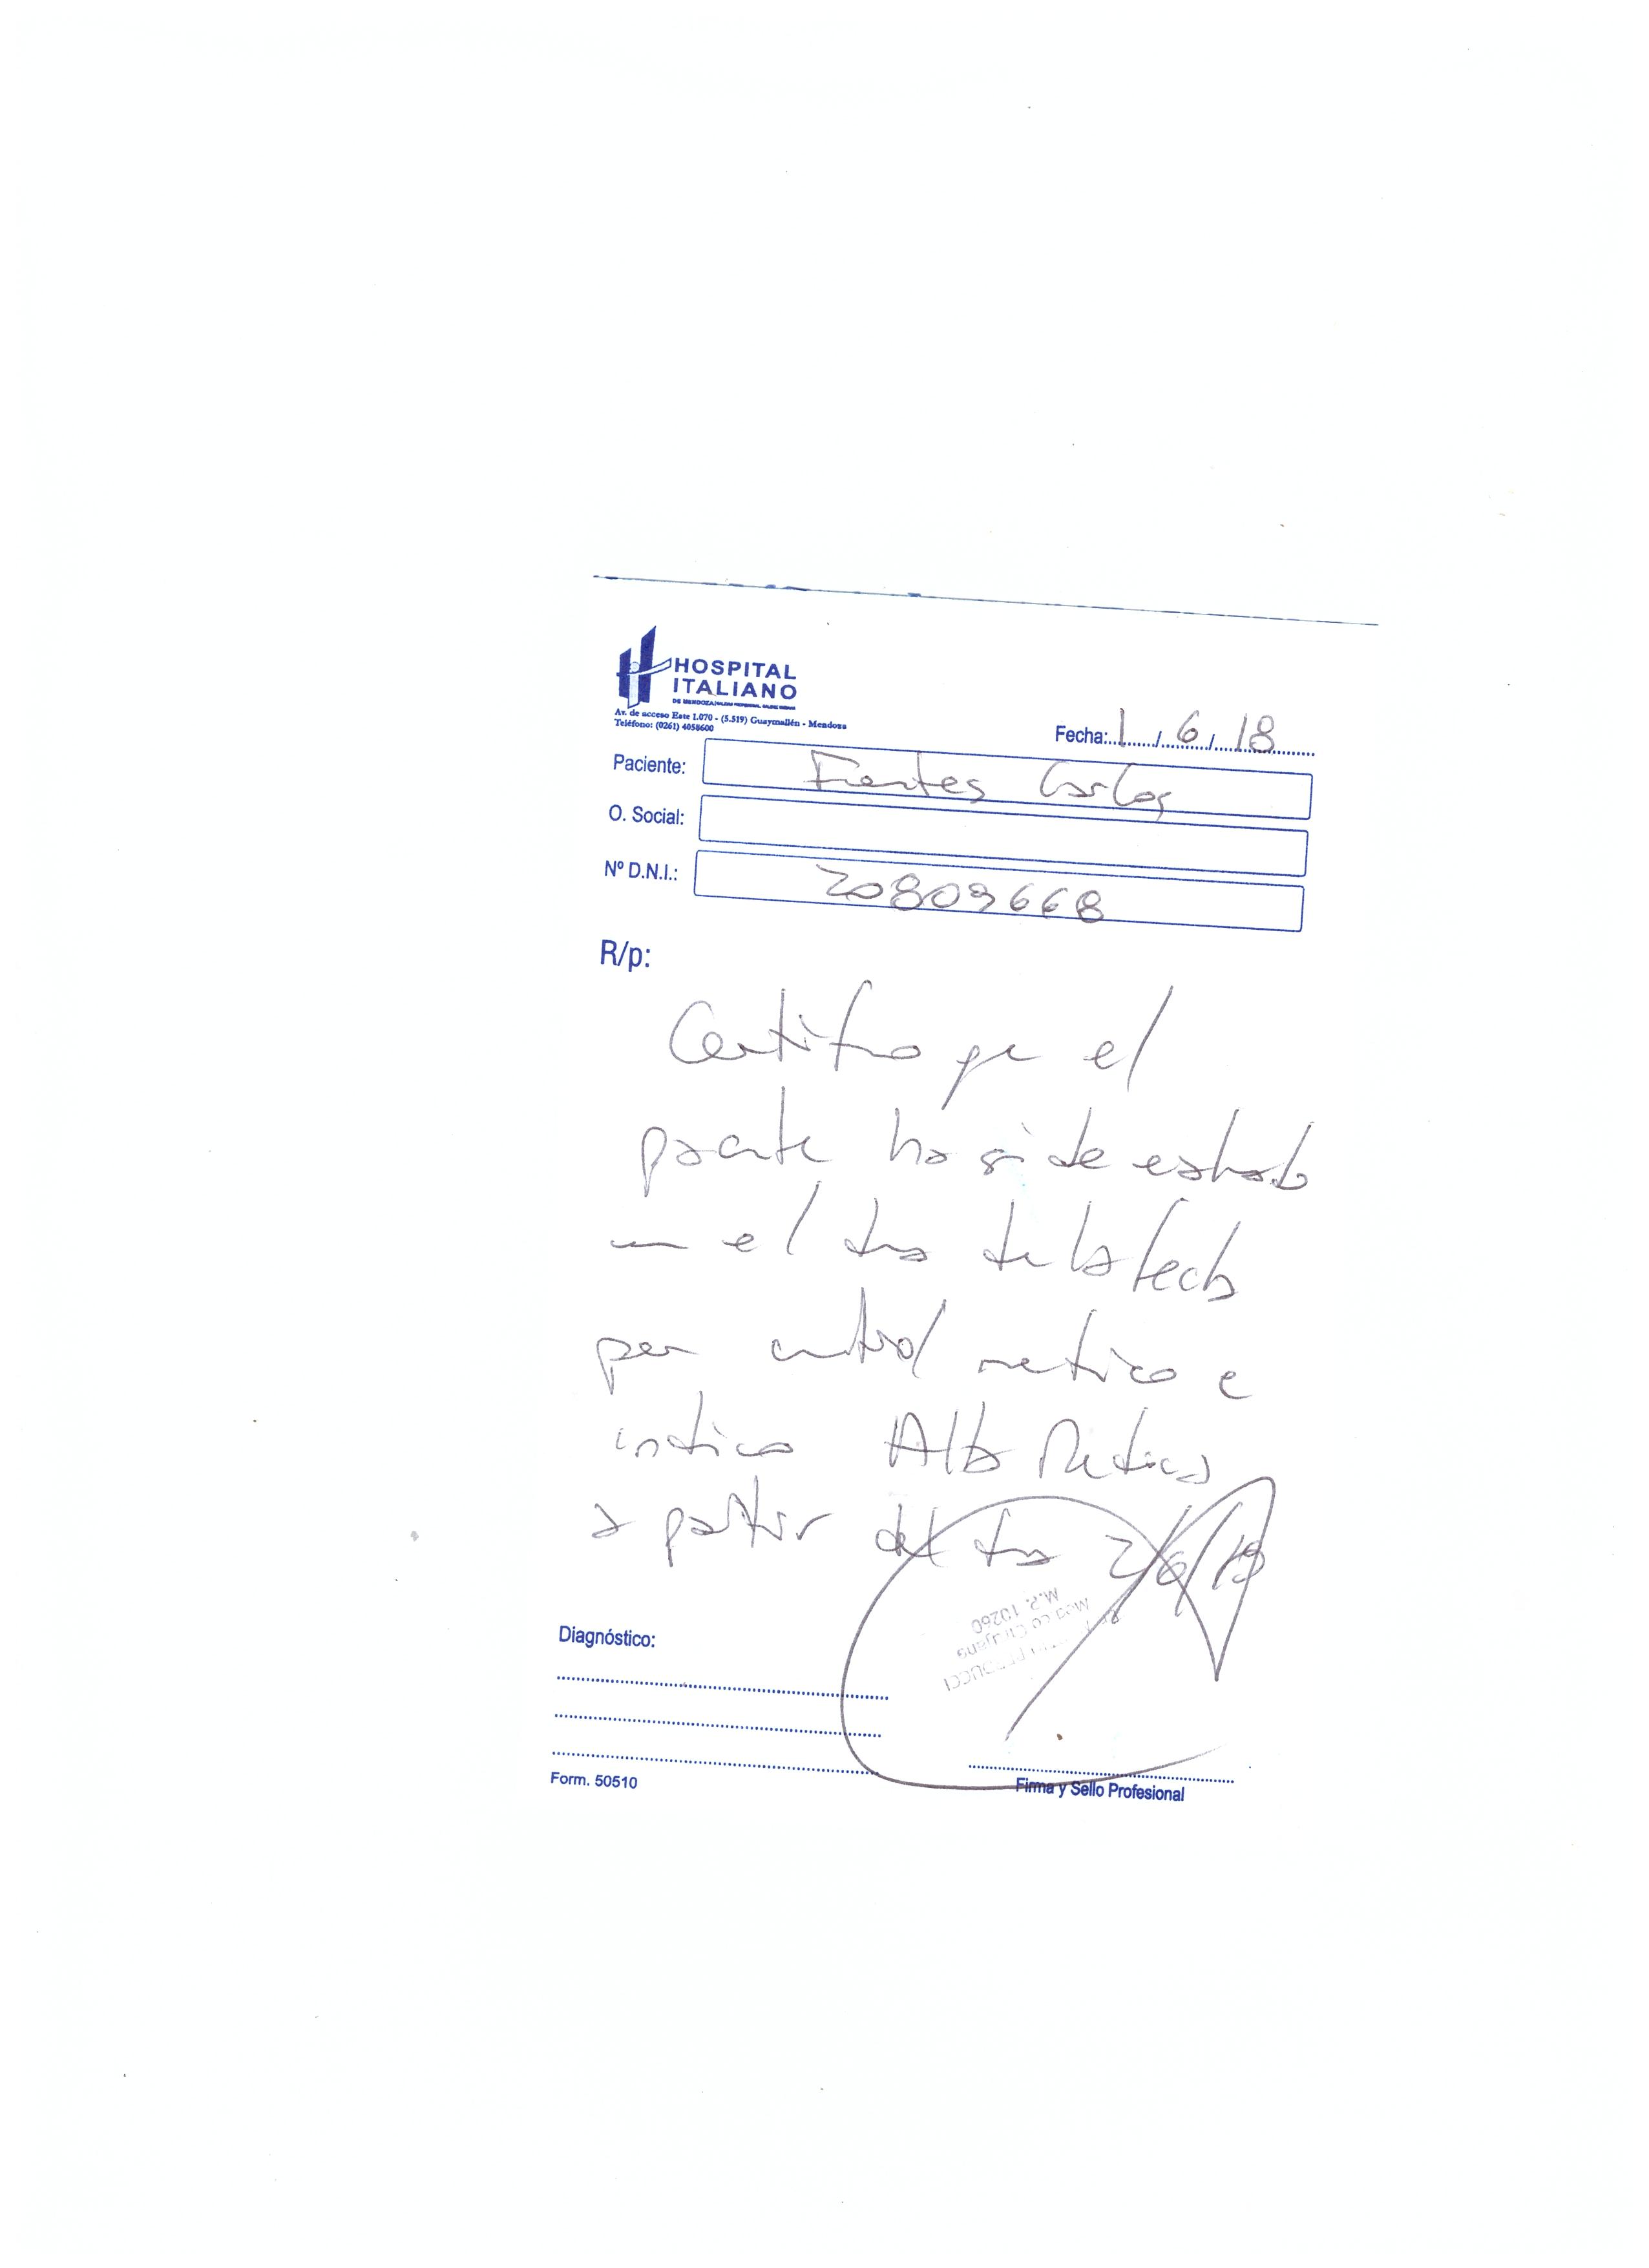 HOSPITAL
ITALIANO
Av. de acceso Este 1.070 - (5.519) Guaymallén - Mendoza
Teléfono: (0261) 4058600
Fecha: 1 / 6 / 18
Paciente: Fuentes Carlos
O. Social:
Nº D.N.I.: 20809668
R/p:
Certifico que el
paciente ha sido
en el dia de la fecha
por control medico e
indico Alta Medica
a partir del dia 2/6/18
M.P. 10260
Medico Cirujano
Diagnóstico:
Form. 50510
Firma y Sello Profesional